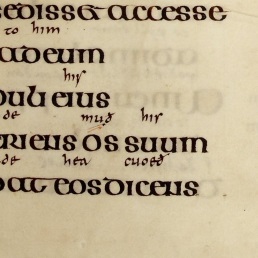 sediss& accesse
to him
adeum
his
puli eius
de muð his
eriens os suum
de hea cuoeð
bat eos dicens